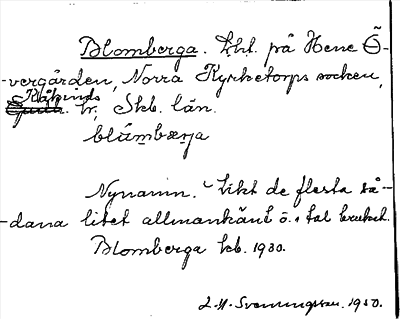 Blomberga. Lht. på Hene Ö-
-vergården, Norra Kyrketorps socken,
Kåkinds
hr, Skb. län.
blåmbærja
Nynamn. Likt de flesta så-
-dana litet allmänkänt o. i tal brukat.
Blomberga lcb. 1930.
L-M. Svenningsson. 1930.